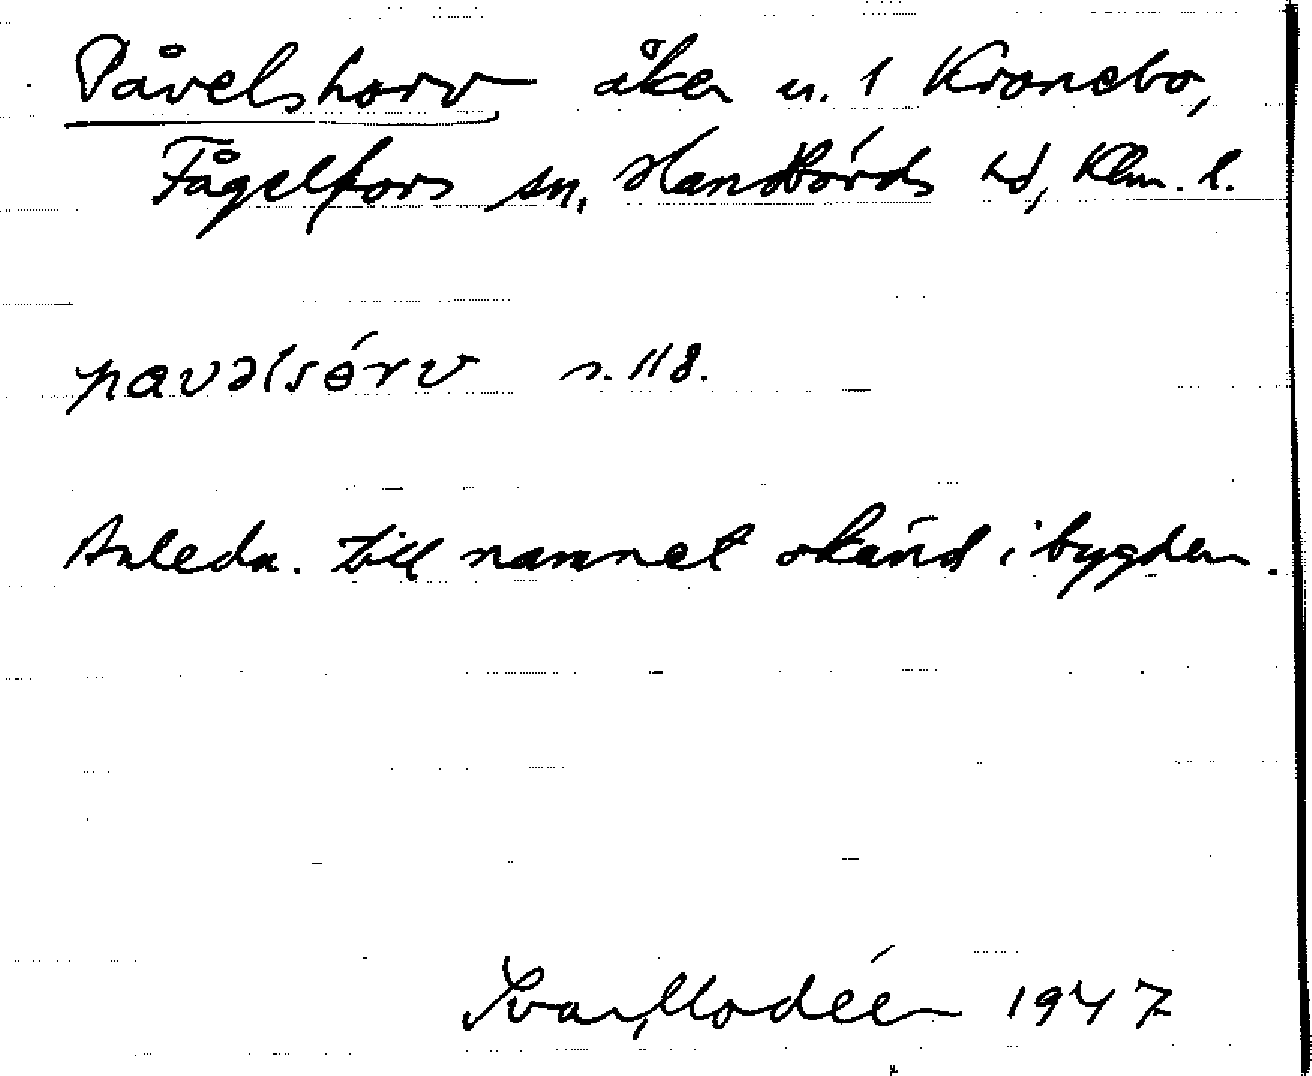 Påvelshorv åker u. 1 Kronebo,
Fågelfors sn, Handbörds hd, Klm. l.
pavəlsörv s. 118.
Anledn. till namnet okänd i bygden.
Ivar Modéer 1947